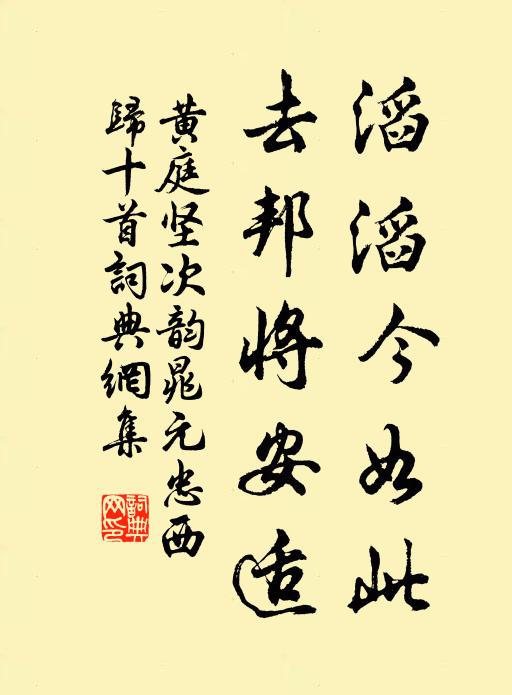 滔滔今如此
去邦将安适
黄庭坚次韵晁元忠西
歸十首詞典網集
詞典
网印